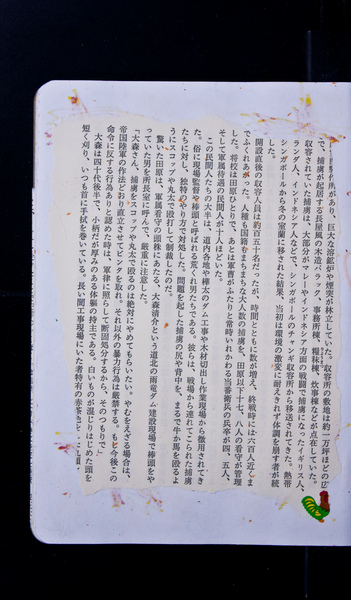 製鉄所があり、巨大な溶鉱炉や煙突が林立していた。収容所の敷地は約一万坪ほどの広
で、捕虜が起居する長屋風の木造バラック、事務所棟、糧秣棟、炊事棟などが点在していた。
収容されていた捕虜は、大部分がマレーやインドネシア方面の戦闘で捕虜になったイギリス人、
ランダ人、インドネシア人などで、シンガポールのチャンギ収容所から移送されてきた。熱帯
シンガポールから冬の室蘭に移された結果、当初は環境の激変に耐えきれず体調を崩す者が続
した。
開設直後の収容人員は約百五十名だったが、時間とともに数が増え、終戦時には六百人近くま
でふくれあがった。人種も国籍もまちまちな大人数の捕虜を、田原以下十七、八人の看守が管理
した。将校は田原ひとりで、あとは軍曹がふたりと常時いれかわる当番衛兵の兵卒が四、五人、
そして軍属待遇の民間人が十人ほどいた。
この民間人たちの大半は、道内各地や樺太のダム工事や木材切出し作業現場から徴用されてき
た。俗に現場監督や棒頭と呼ばれる荒くれ男たちである。彼らは、戦場から連れてこられた捕虜
たちに対し、独特のやり方で対処した。問題を起した捕虜の尻や背中を、まるで牛か馬を殴るよ
うにスコップや丸太で殴打して制裁したのだ。
驚いた田原は、軍属看守の頭株にあたる、大森清介という道北の雨竜ダム建設現場で棒頭をや
っていた男を所長室に呼んで、厳重に注意した。
「大森さん、捕虜をスコップや丸太で殴るのは絶対にやめてもらいたい。やむをえざる場合は、
帝国陸軍の作法どおり直立させてビンタを取れ。それ以外の暴力行為は厳禁する。もし今後この
命令に反する行為ありと認めた時は、軍律に照らして断固処分するから、そのつもりで」
大森は四十代後半で、小柄だが厚みのある体軀の持主である。白いものが混じりはじめた頭を
短く刈り、いつも首に手拭を巻いている。長い間工事現場にいた者特有の赤茶色